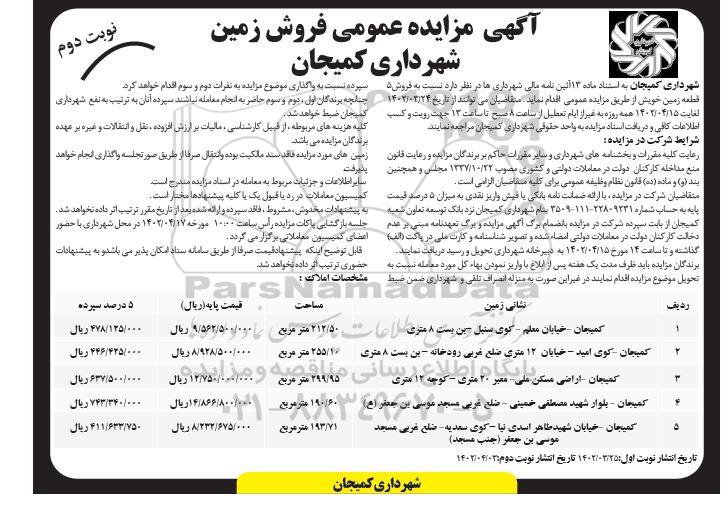 نوبت دوم
آگهی مزایده عمومی فروش زمین
شهرداری کمیجان
شهرداری کمیجان به استناد ماده ۱۳ آئین نامه مالی شهرداری ها در نظر دارد نسبت به فروش ۵
قطعه زمین خویش از طریق مزایده عمومی اقدام نماید. متقاضیان می توانند از تاریخ ۱۴۰۲/۰۳/۲۴
لغایت ۱۴۰۲/۰۴/۱۵ همه روزه به غیر از ایام تعطیل از ساعت ۸ صبح تا ساعت ۱۳ جهت رویت و کسب
اطلاعات کافی و دریافت اسناد مزایده به واحد حقوقی شهرداری کمیجان مراجعه نمایند.
شرایط شرکت در مزایده :
رعایت کلیه مقررات و بخشنامه های شهرداری و سایر مقررات حاکم بر برندگان مزایده و رعایت قانون
منع مداخله کارکنان دولت در معاملات دولتی و کشوری مصوب ۱۳۳۷/۱۰/۲۲ مجلس و همچنین
بند (و) و ماده (ده) قانون نظام وظیفه عمومی برای کلیه متقاضیان الزامی است .
متقاضیان شرکت در مزایده ، با ارائه ضمانت نامه بانکی یا فیش واریز نقدی به میزان ۵ درصد قیمت
پایه به حساب شماره ۲۲۸۰۹۲۳۱-۱۱۱-۳۵۰۹ بنام شهرداری کمیجان نزد بانک توسعه تعاون شعبه
کمیجان از بابت سپرده شرکت در مزایده بانضمام برگ آگهی مزایده و برگ تعهدنامه مبنی بر عدم
دخالت کارکنان دولت در معاملات دولتی امضاء شده و تصویر شناسنامه و کارت ملی در پاکت (الف)
گذاشته و تا ساعت ۱۴ مورخ ۱۴۰۲/۰۴/۱۵ به دبیرخانه شهرداری تحویل و رسید دریافت نمایند.
برندگان مزایده باید ظرف مدت یک هفته پس از ابلاغ با واریز نمودن بهای کل مورد معامله نسبت به
تحویل موضوع مزایده اقدام نمایند در غیراین صورت به منزله انصراف تلقی و شهرداری ضمن ضبط
سپرده نسبت به واگذاری موضوع مزایده به نفرات دوم و سوم اقدام خواهد کرد.
چنانچه برندگان اول ، دوم و سوم حاضر به انجام معامله نباشند سپرده آنان به ترتیب به نفع شهرداری
کمیجان ضبط خواهد شد .
کلیه هزینه های مربوطه ، از قبیل کارشناسی ، مالیات بر ارزش افزوده ، نقل و انتقالات و غیره بر عهده
برندگان مزایده می باشد.
زمین های مورد مزایده فاقد سند مالکیت بوده و انتقال صرفا از طریق صورتجلسه واگذاری انجام خواهد
پذیرفت
سایر اطلاعات و جزئیات مربوط به معامله در اسناد مزایده مندرج است.
کمیسیون معاملات در رد یا قبول یک یا کلیه پیشنهادها مختار است .
به پیشنهادات مخدوش ، مشروط ، فاقد سپرده و ارائه شده بعد از تاریخ مقرر ترتیب اثر داده نخواهد شد.
جلسه بازگشایی پاکات مزایده رأس ساعت ۱۰:۰۰ مورخه ۱۴۰۲/۰۴/۱۷ در محل شهرداری با حضور
اعضای کمیسیون معاملاتی برگزار می گردد .
قابل توضیح اینکه پیشنهاد قیمت صرفا از طریق سامانه ستاد امکان پذیر می باشد و به پیشنهادات
حضوری ترتیب اثر داده نخواهد شد.
مشخصات املاک :
ردیف نشانی زمین مساحت قیمت پایه (ریال) ۵ درصد سپرده
۱ کمیجان –خیابان معلم – کوی سنبل –بن بست ۸ متری ۲۱۲/۵۰ متر مربع ۹/۵۶۲/۵۰۰/۰۰۰ ریال ۴۷۸/۱۲۵/۰۰۰ ریال
۲ کمیجان –کوی امید – خیابان ۱۲ متری ضلع غربی رودخانه – بن بست ۸ متری ۲۵۵/۱۰ متر مربع ۸/۹۲۸/۵۰۰/۰۰۰ ریال ۴۴۶/۴۲۵/۰۰۰ ریال
۳ کمیجان –اراضی مسکن ملی– معبر ۲۰ متری – کوچه ۱۲ متری ۲۹۹/۹۵ متر مربع ۱۲/۷۵۰/۰۰۰/۰۰۰ ریال ۶۳۷/۵۰۰/۰۰۰ ریال
۴ کمیجان – بلوار شهید مصطفی خمینی – ضلع غربی مسجد موسی بن جعفر (ع) ۱۹۰/۶۰ متر مربع ۱۴/۸۶۶/۸۰۰/۰۰۰ ریال ۷۴۳/۳۴۰/۰۰۰ ریال
۵ کمیجان –خیابان شهید طاهر اسدی نیا – کوی سعدیه– ضلع غربی مسجد ۱۹۳/۷۱ متر مربع ۸/۲۳۲/۶۷۵/۰۰۰ ریال ۴۱۱/۶۳۳/۷۵۰ ریال
موسی بن جعفر (جنب مسجد)
تاریخ انتشار نوبت اول: ۱۴۰۲/۰۳/۲۵ تاریخ انتشار نوبت دوم: ۱۴۰۲/۰۴/۰۳
شهرداری کمیجان